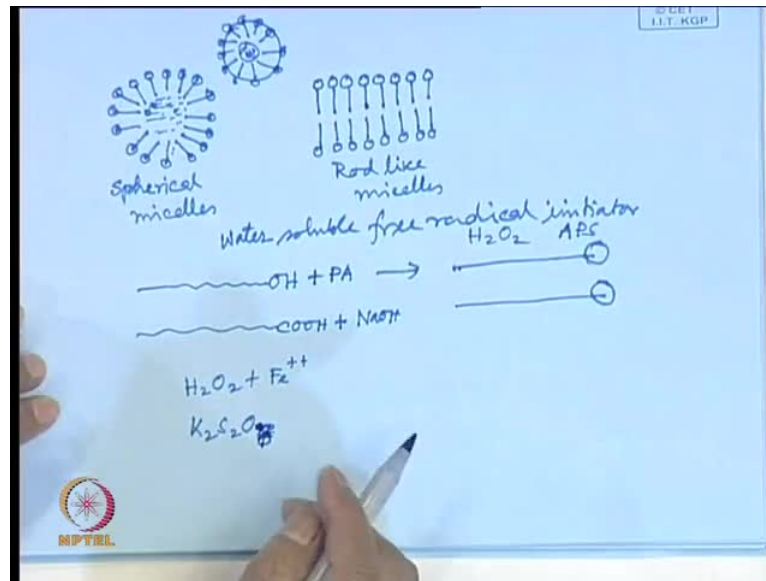 © CET
I.I.T. KGP
Spherical
micelles
Rod like
micelles
Water soluble free radical initiator
H2O2 APS
OH + PA →
COOH + NaOH
H2O2 + Fe++
K2S2O
NPTEL